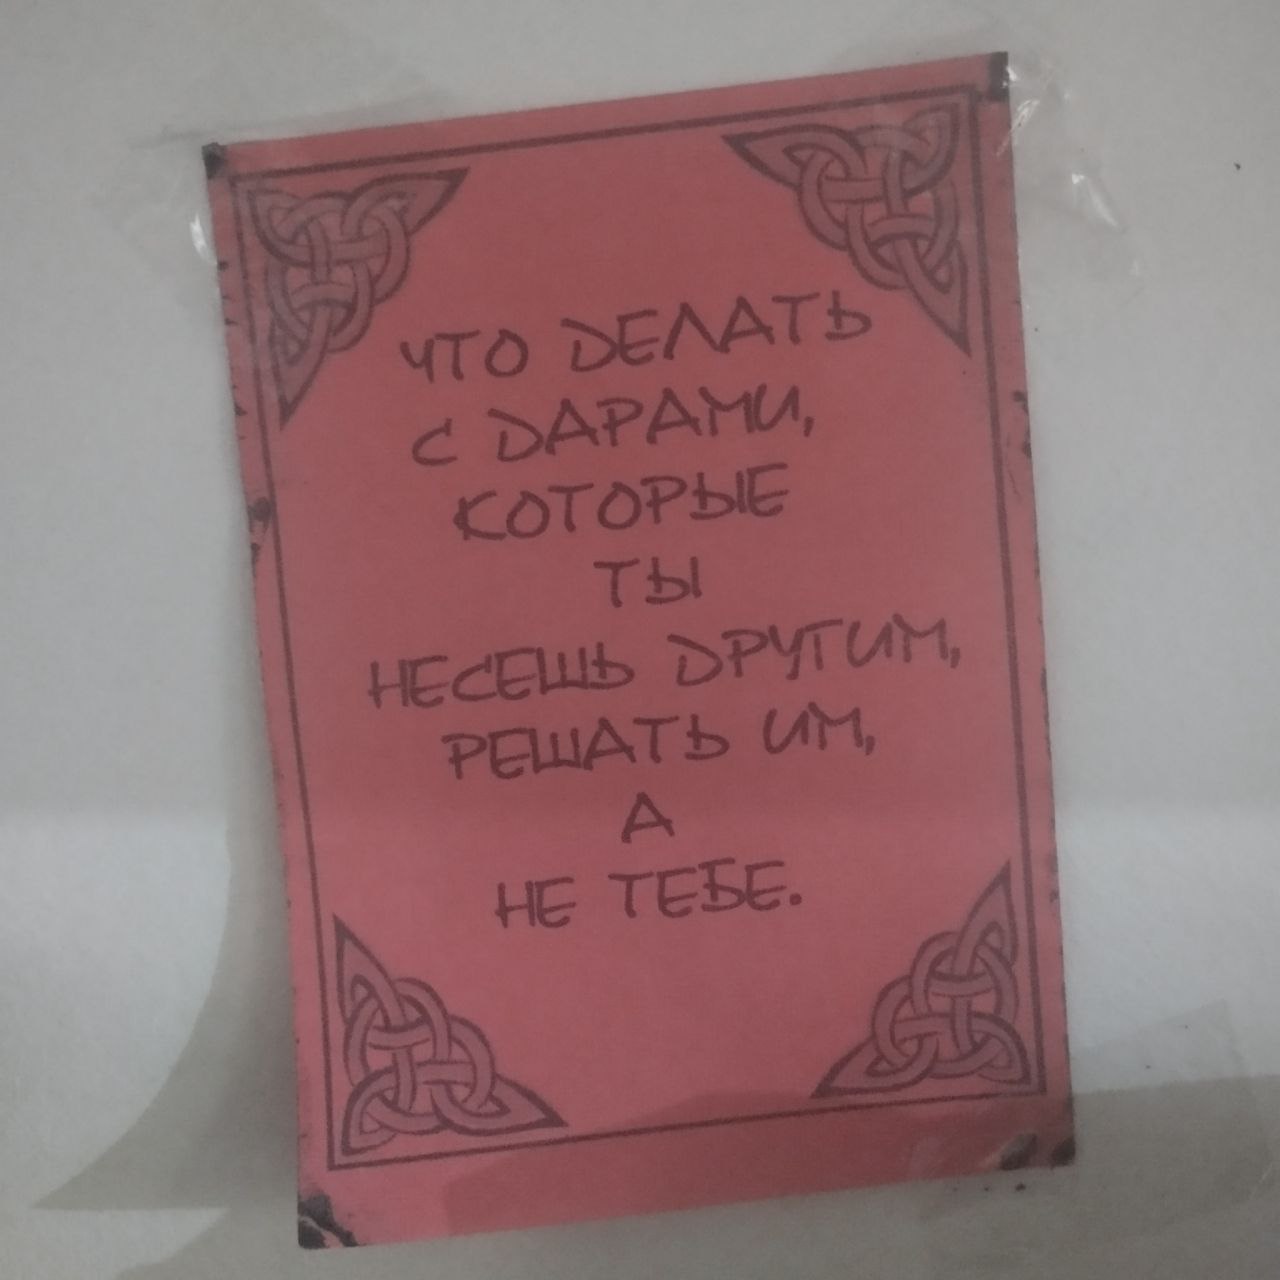 ЧТО ДЕЛАТЬ
С ДАРАМИ,
КОТОРЫЕ
ТЫ
НЕСЕШЬ ДРУГИМ,
РЕШАТЬ ИМ,
А
НЕ ТЕБЕ.